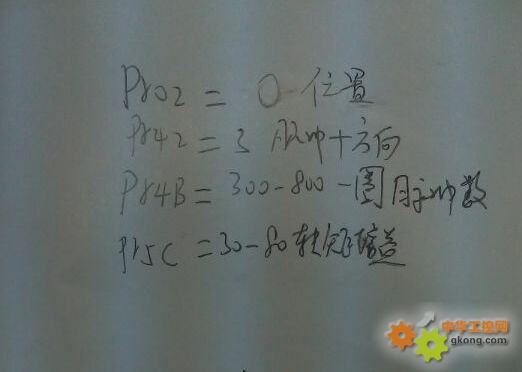 Pr02 = 0 位置
Pr42 = 3 脉冲+方向
Pr4B = 300-800 一圈脉冲数
Pr5C = 30-80 转矩增益
中华工控网
gkong.com